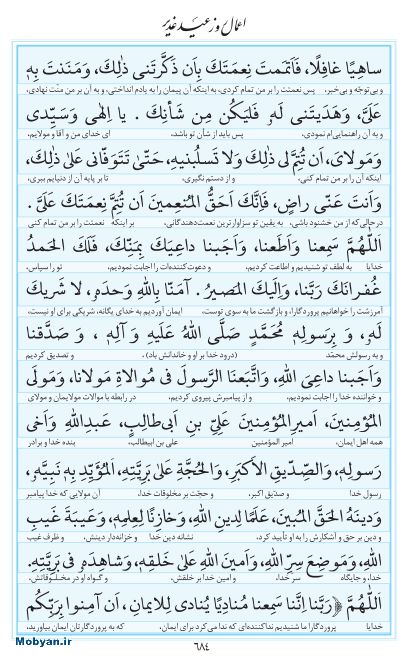 اعمال روز عید غدیر
ساهِیًا غافِلًا، فَاَتمَمتَ نِعمَتَكَ بِاَن ذَكَّرتَنی ذٰلِكَ، وَمَنَنتَ بِهٖ
و بی‌توجّه و بی‌خبر، پس نعمتت را بر من تمام کردی، به اینکه آن پیمان را به یادم انداختی، و به آن بر من منّت نهادی،
عَلَیَّ، وَهَدَیتَنی لَهٗ فَلیَكُن مِن شَأنِكَ . یا اِلٰهی وَسَیِّدی
و به آن راهنمایی‌ام نمودی، پس باید از شأن تو باشد، ای خدای من و آقا و مولایم،
وَمَولایَ، اَن تُتِمَّ لی ذٰلِكَ وَلا تَسلُبنیهِ، حَتّیٰ تَتَوَفّانی عَلیٰ ذٰلِكَ،
اینکه آن را بر من تمام کنی، و از دستم نگیری، تا بر پایه آن از دنیایم ببری،
وَاَنتَ عَنّی راضٍ، فَاِنَّكَ اَحَقُّ المُنعِمینَ اَن تُتِمَّ نِعمَتَكَ عَلَیَّ .
در حالی‌که از من خشنود باشی، به یقین تو سزاوارترین نعمت‌دهندگانی، بر اینکه نعمتت را بر من تمام کنی
اَللّٰهُمَّ سَمِعنا وَاَطَعنا، وَاَجَبنا داعِیَكَ بِمَنِّكَ، فَلَكَ الحَمدُ
خدایا به لطف تو شنیدیم و اطاعت کردیم، و دعوت‌کننده‌ات را اجابت نمودیم، تو را سپاس،
غُفرانَكَ رَبَّنا، وَاِلَیكَ المَصیرُ . آمَنّا بِاللّٰهِ وَحدَهٗ، لا شَریكَ
آمرزشت را خواهانیم پروردگارا، و بازگشت ما به سوی توست، ایمان آوردیم به خدای یگانه، شریکی برای او نیست،
لَهٗ، وَ بِرَسولِهٖ مُحَمَّدٍ صَلَّی اللّٰهُ عَلَیهِ وَ آلِهٖ ، وَ صَدَّقنا
و به رسولش محمّد (درود خدا بر او و خاندانش باد) ، و تصدیق کردیم
وَاَجَبنا داعِیَ اللّٰهِ، وَاتَّبَعنَا الرَّسولَ فی مُوالاةِ مَولانا، وَمَولَی
و خواننده خدا را اجابت نمودیم، و از پیامبرش پیروی کردیم، در رابطه با موالات مولایمان و مولای
المُؤمِنینَ، اَمیرِالمُؤمِنینَ عَلِیِّ بنِ اَبی‌طالِبٍ، عَبدِاللّٰهِ وَاَخی
همه اهل ایمان، امیر المؤمنین علی بن ابیطالب، بنده خدا و برادر
رَسولِهٖ، وَالصِّدّیقِ الاَكبَرِ، وَالحُجَّةِ عَلیٰ بَرِیَّتِهِ، المُؤَیِّدِ بِهٖ نَبِیَّهٗ،
رسول خدا و صدیق اکبر، و حجّت بر مخلوقات خدا، آن مولایی که خدا پیامبر
وَدینَهُ الحَقَّ المُبینَ، عَلَمًا لِدینِ اللّٰهِ، وَخازِنًا لِعِلمِهٖ، وَعَیبَةَ غَیبِ
و دین بر حق و آشکارش را به او تأیید کرد، نشانه دین خدا و خزانه‌دار دینش، و ظرف غیب
اللّٰهِ، وَمَوضِعَ سِرِّ اللّٰهِ، وَاَمینَ اللّٰهِ عَلیٰ خَلقِهٖ، وَشاهِدَهٗ فی بَرِیَّتِهٖ.
خدا، و جایگاه سرّ خدا، و امین خدا بر خلقش، و گواه او در مخلوقاتش،
اَللّٰهُمَّ ﴿رَبَّنا اِنَّنا سَمِعنا مُنادِیًا یُنادی لِلایمانِ ، اَن آمِنوا بِرَبِّكُم
خدایا پروردگارا ما شنیدیم نداکننده‌ای که ندا می‌کرد برای ایمان، که به پروردگارتان ایمان بیاورید،
۶۸۴
Mobyan.ir